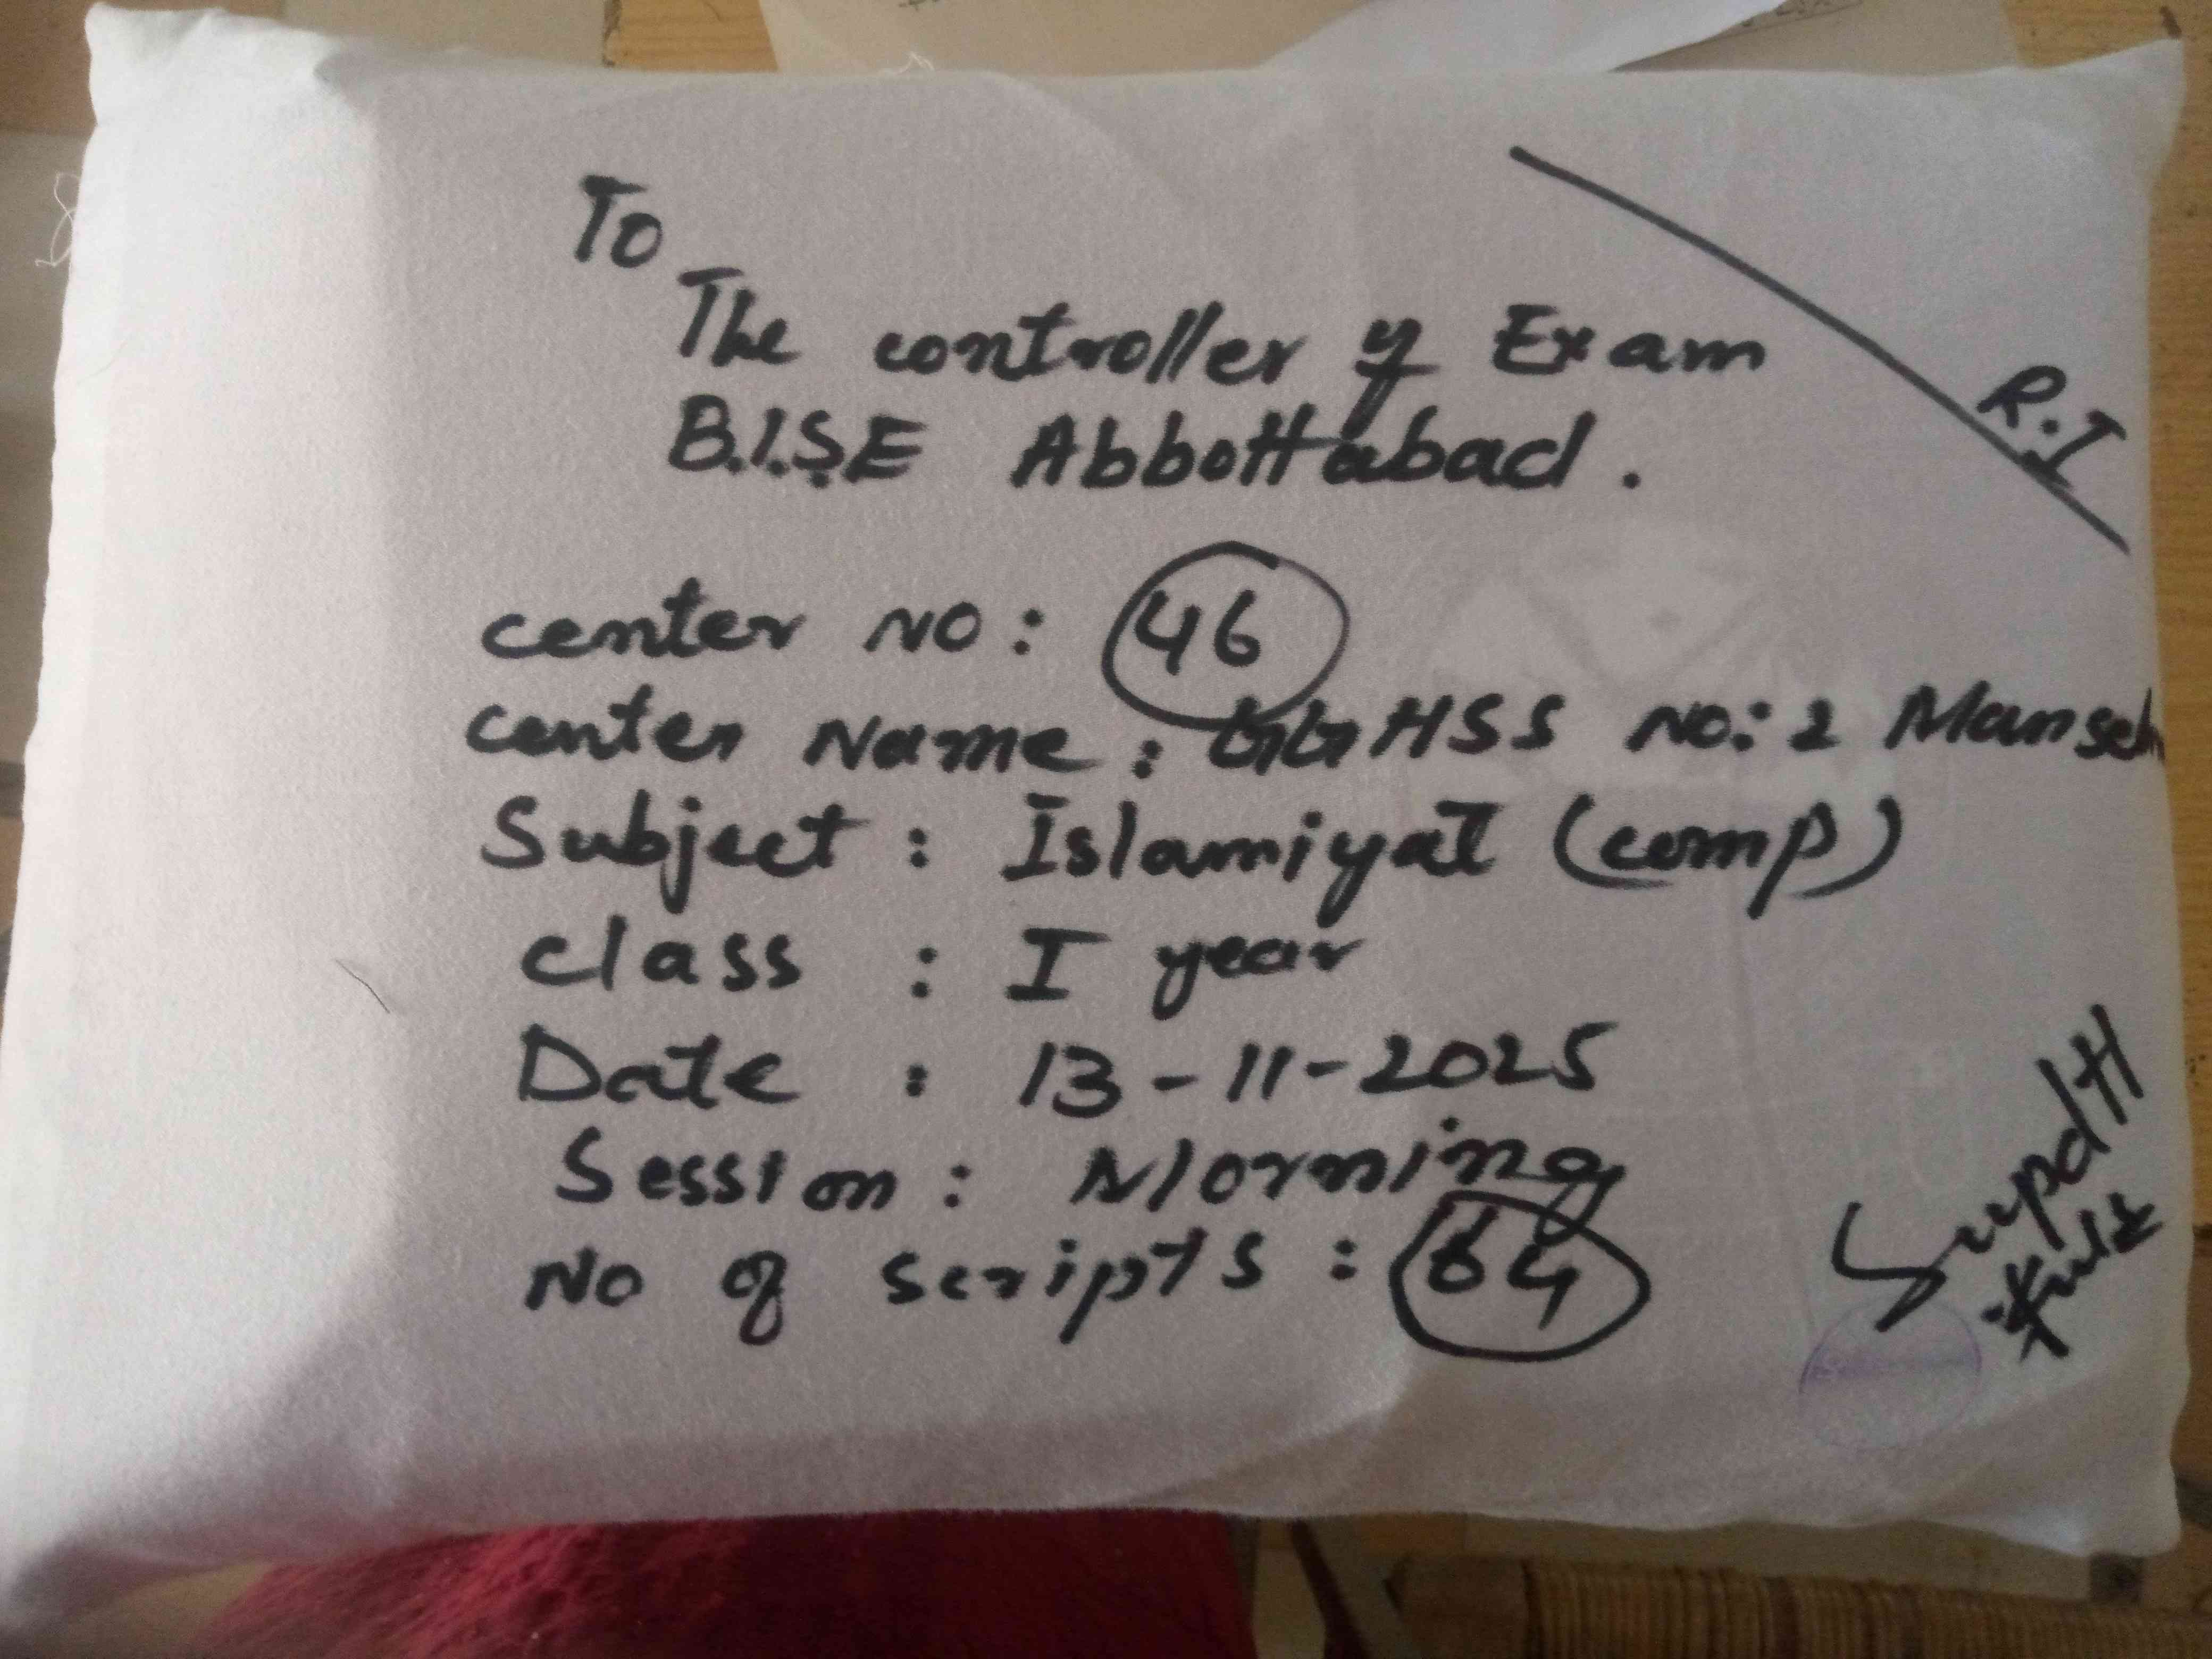 To
The controller of Exam
B.I.S.E Abbottabad.
R.I
center NO: 46
center Name: GGHSS NO: 2 Manseh
Subject: Islamiyat (comp)
class : I year
Date : 13-11-2025
Session: Morning
No of scripts: 64
Supdtt